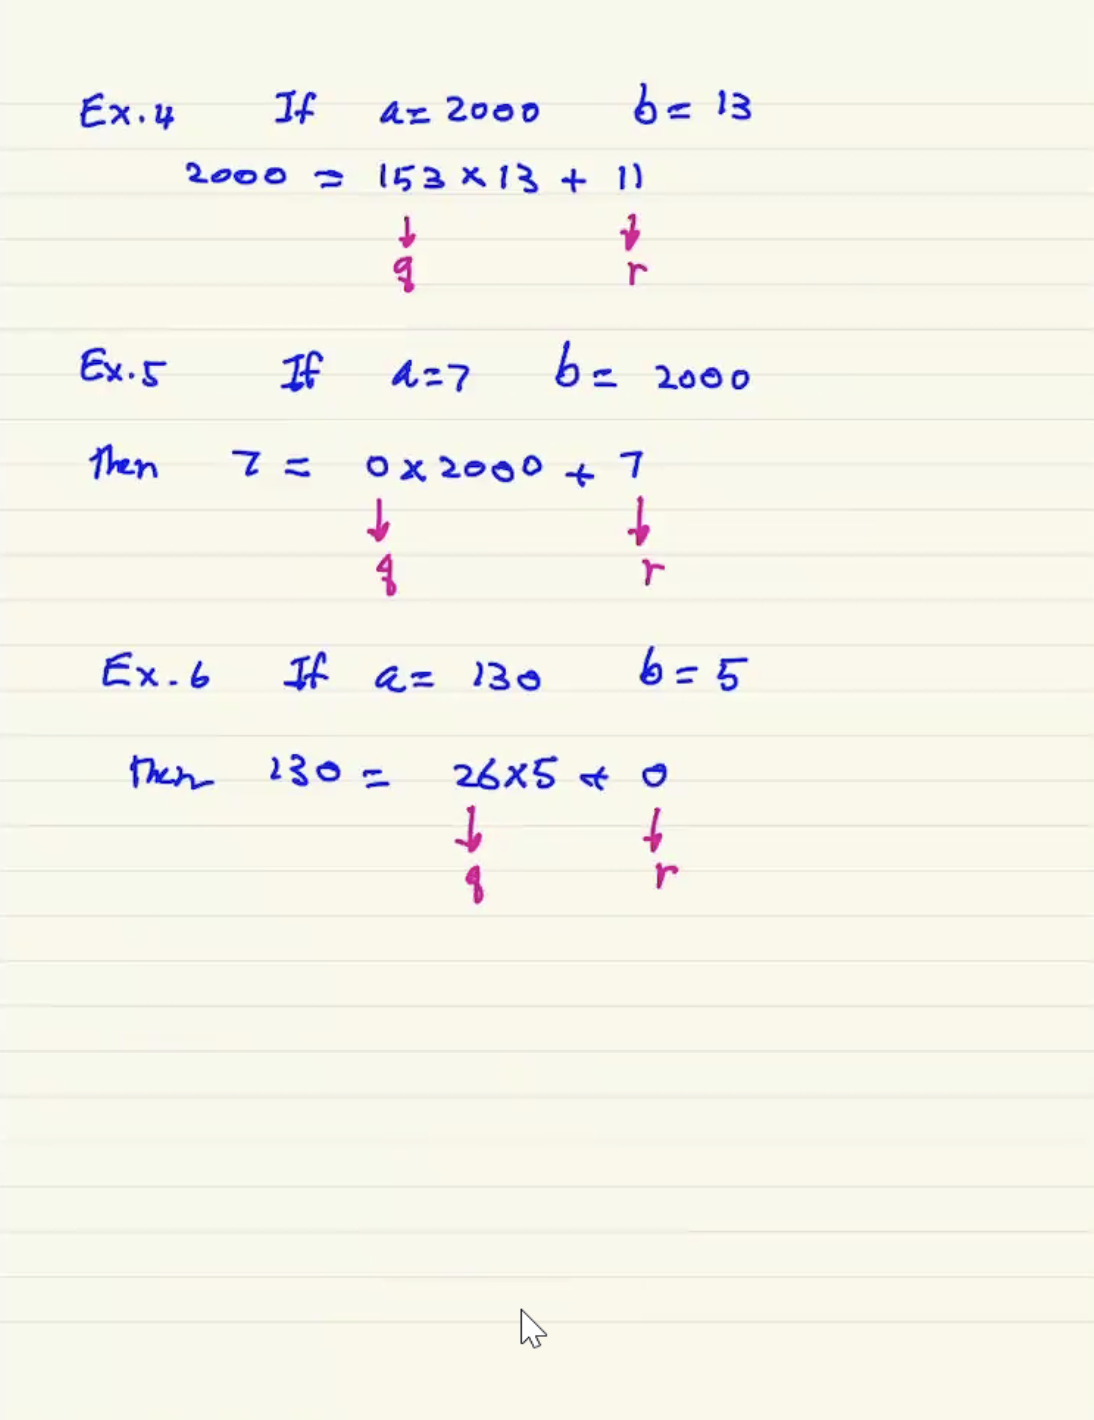 Ex.4 If a=2000 b=13
2000 = 153×13 + 11
↓ ↓
q r
Ex.5 If a=7 b=2000
then 7 = 0×2000 + 7
↓ ↓
q r
Ex.6 If a=130 b=5
then 130 = 26×5 + 0
↓ ↓
q r